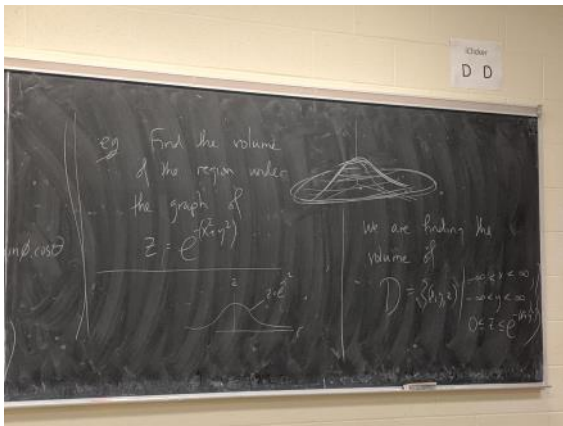 iClicker
D D
eg Find the volume
of the region under
the graph of
z = e^-(x²+y²)
z
z = e^-r²
r
we are finding the
volume of
D = {(x,y,z) | -∞ < x < ∞
-∞ < y < ∞
0 ≤ z ≤ e^-(x²+y²)}